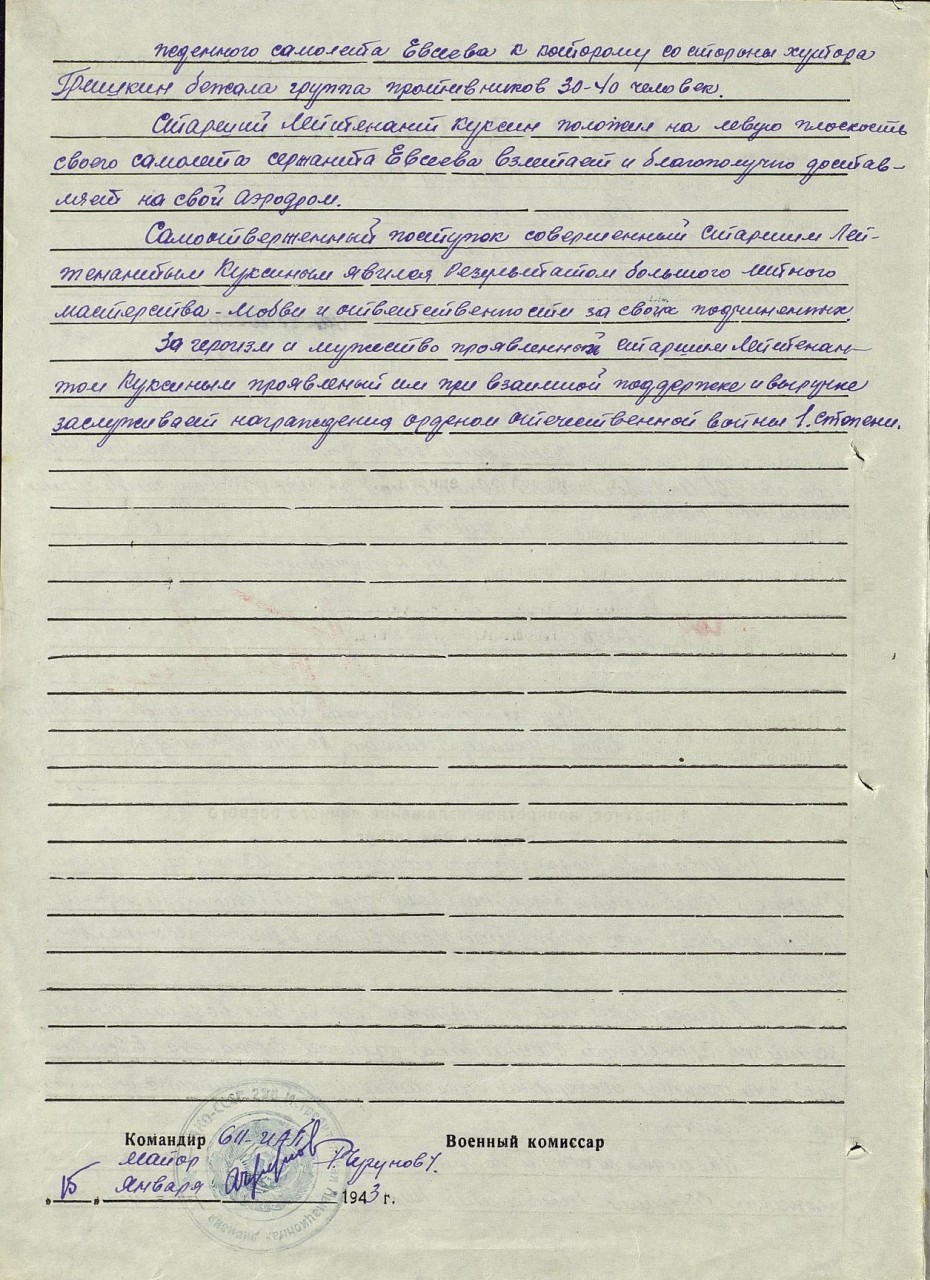 жденного самолета Евсеева к которому со стороны хутора
Грицкин бежала группа противников 30-40 человек.
Старший Лейтенант Куксин положил на левую плоскость
своего самолета сержанта Евсеева взлетает и благополучно достав-
ляет на свой аэродром.
Самоотверженный поступок совершенный Старшим Лей-
тенантым Куксиным явился результатом большого летного
мастерства - любви и ответственности за своих подчиненных.
За героизм и мужество проявленной старшим Лейтенан-
том Куксиным проявленый им при взаимной поддержке и выручке
заслуживает награждения орденом отечественной войны 1. степени.
Командир 611-ИАП Военный комиссар
майор /Чугунов/.
"15" Января 1943 г.